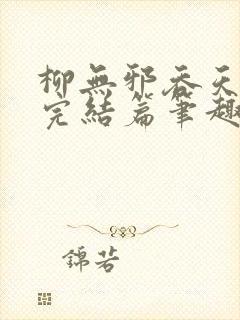 柳無邪吞天
完結篇筆趣
錦若